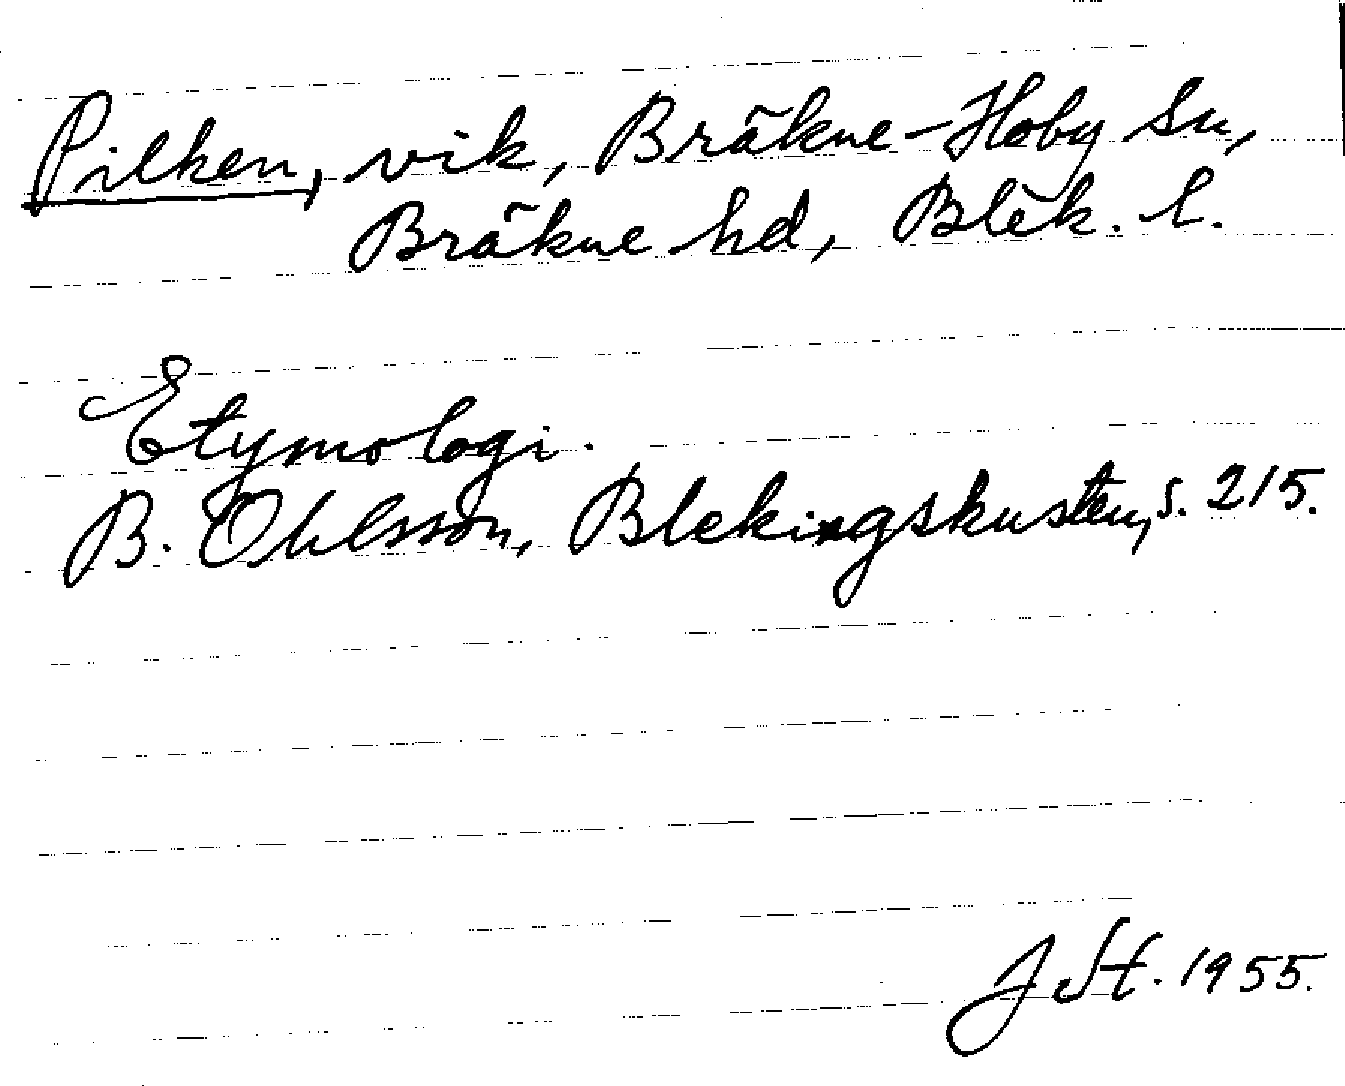 Pilken, vik, Bräkne-Hoby sn,
Bräkne hd, Blek. l.
Etymologi.
B. Ohlsson, Blekingskusten, s. 215.
J St. 1955.